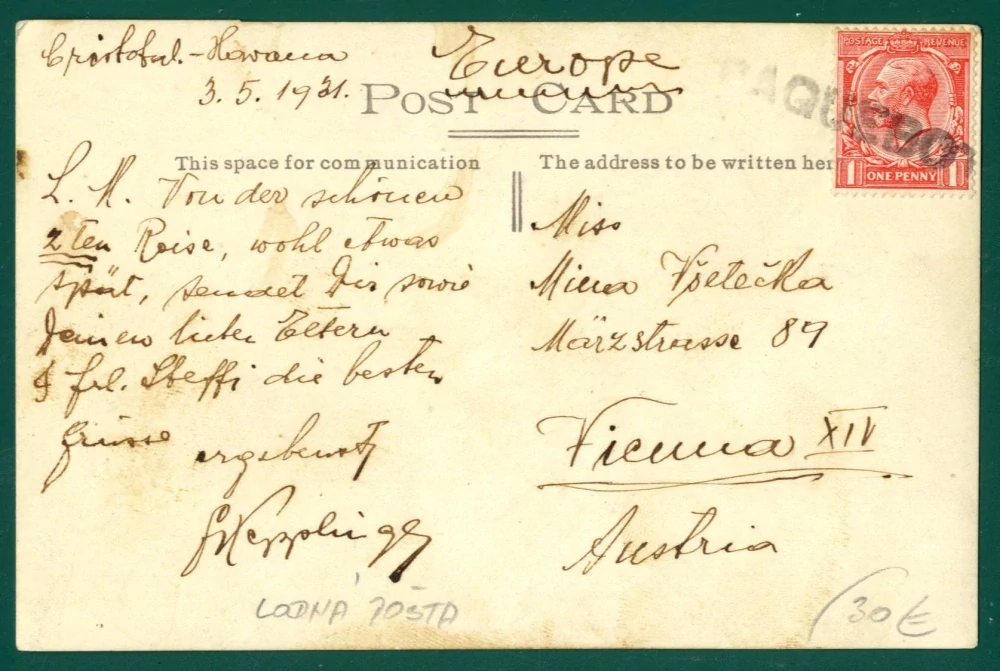 Cristobal.-Havana
3.5.1931.
Europe
POST CARD
This space for communication
The address to be written her
POSTAGE REVENUE
1 ONE PENNY 1
PAQUEBOT
L. M. Von der schönen
2ten Reise, wohl etwas
spät, sendet Dir sowie
Deinen lieben Eltern
& frl. Steffi die besten
Grüsse
ergebenst
Miss
Mina Všetečka
Märzstrasse 89
Vienna XIV
Austria
LODNÁ POŠTA
30€